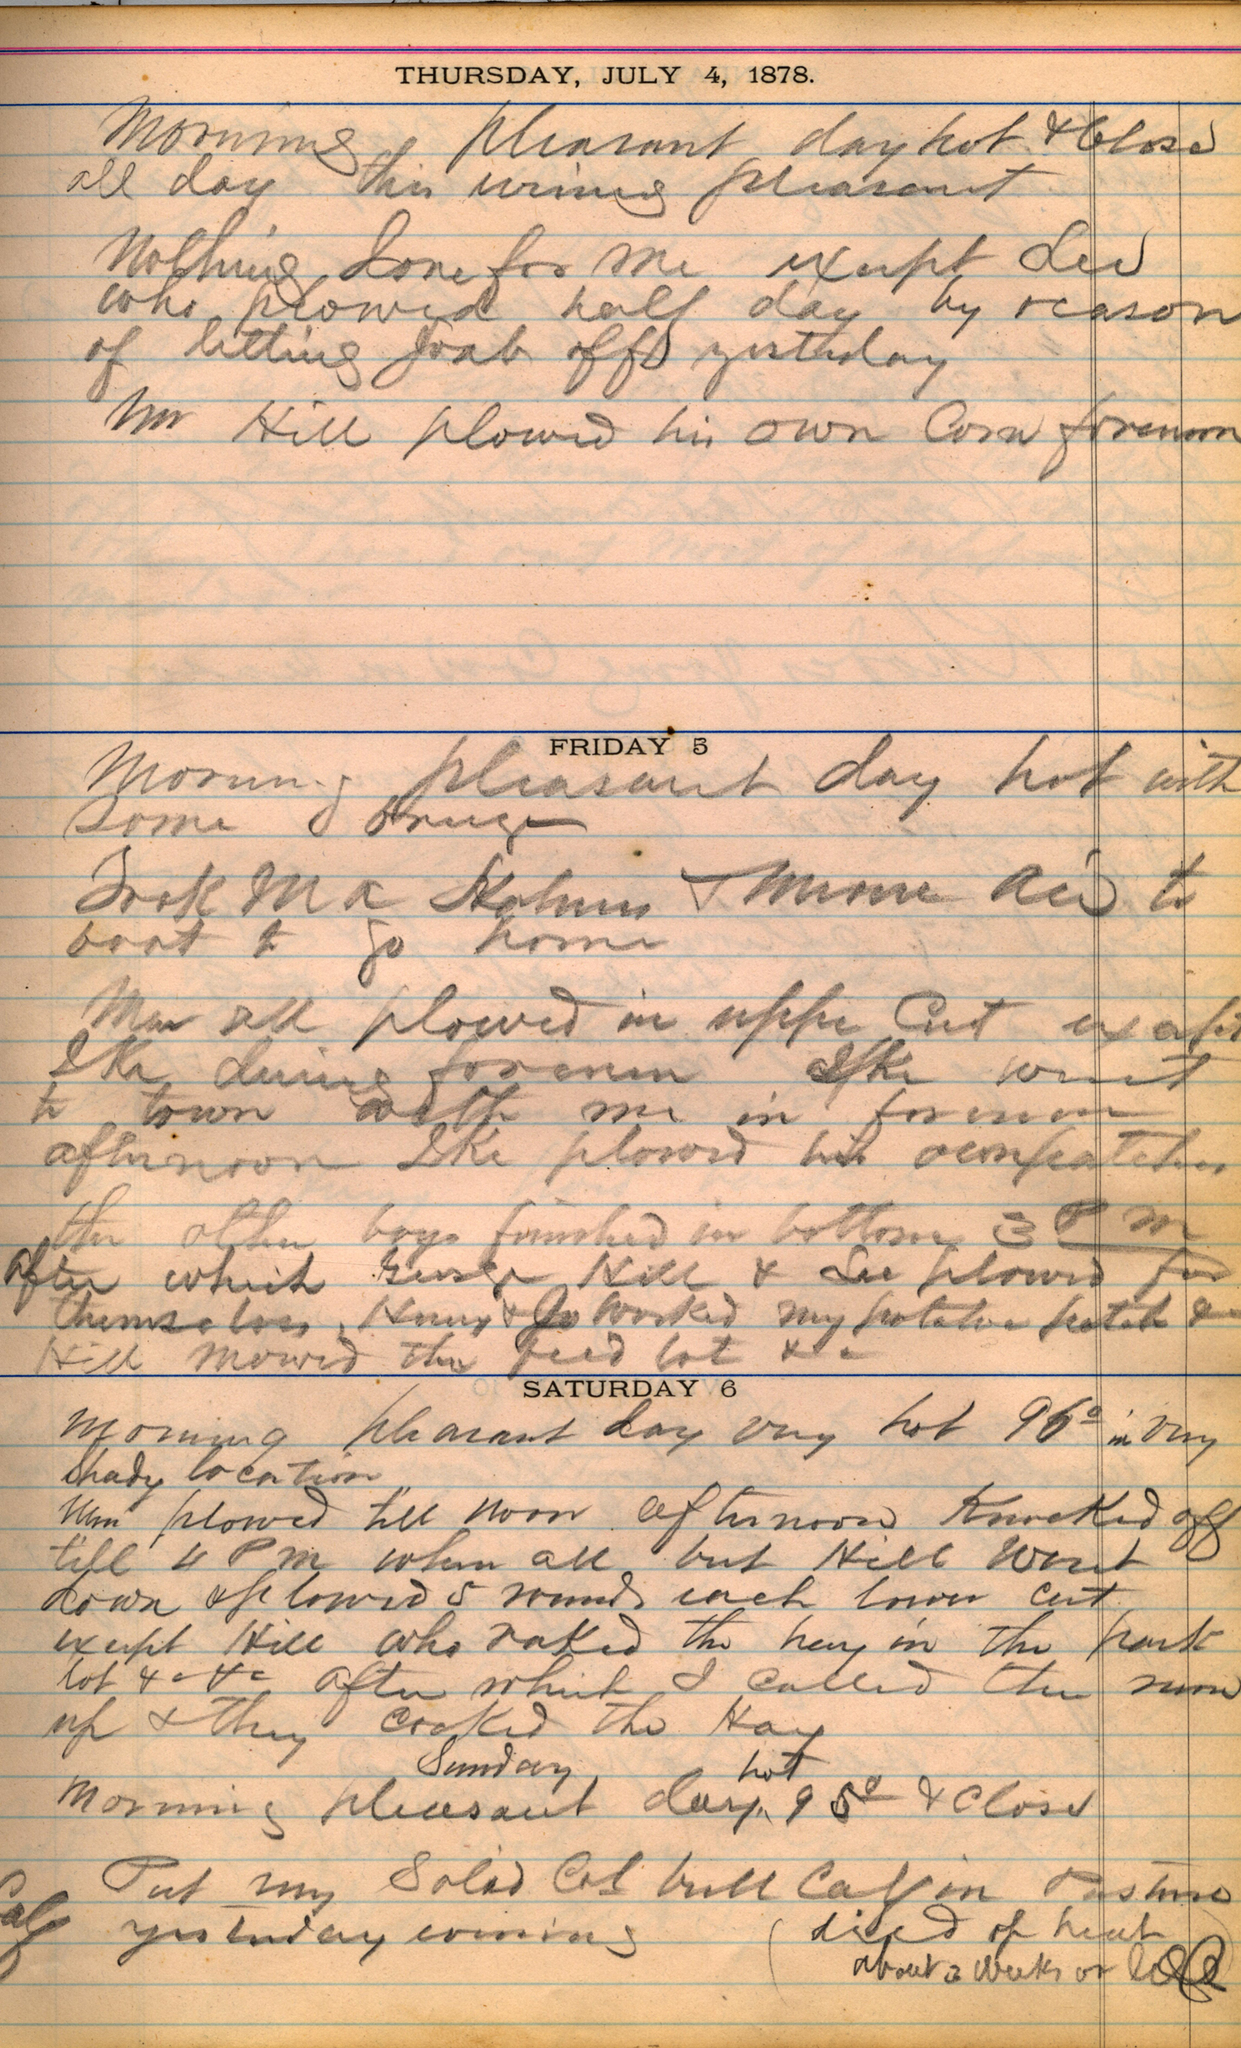 THURSDAY, JULY 4, 1878.
Morning pleasant day hot & Close
all day this evening pleasant
Nothing done for me except Lee
who plowed half day by reason
of letting Joab off yesterday
Mr Hill plowed his own Corn forenoon
FRIDAY 5
Morning pleasant day hot with
some breeze
Took M & to
boat to go home
Men all plowed in upper Cut except
Ike during forenoon Ike went
to town with me in forenoon
afternoon Ike plowed his own patches
the other boys finished in bottom 3 P M
after which George Hill & Lee plowed for
themselves Henry & Jo worked my potatoe patch &c
Hill mowed the feed lot &c
SATURDAY 6
Morning pleasant day very hot 96° in very
shady location
Men plowed till noon afternoon Knocked off
till 4 P M when all but Hill Went
down & plowed 5 rounds each lower cut
except Hill who raked the hay in the park
lot &c &c after which I called the men
up & they cocked the Hay
Sunday
Morning pleasant day hot 95° & Close
Calf
Put my Solid Col bull Calf in Pasture
yesterday evening (died of heat
about 2 weeks or